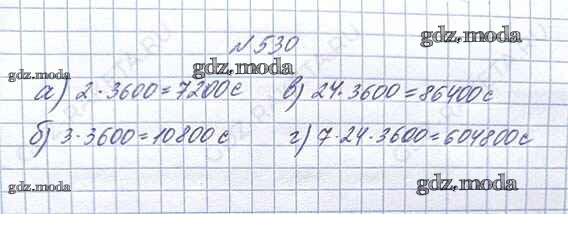 №530
gdz.moda
gdz.moda
gdz.moda
а) 2·3600=7200с
в) 24·3600=86400с
gdz.moda
б) 3·3600=10800с
г) 7·24·3600=604800с
gdz.moda
gdz.moda